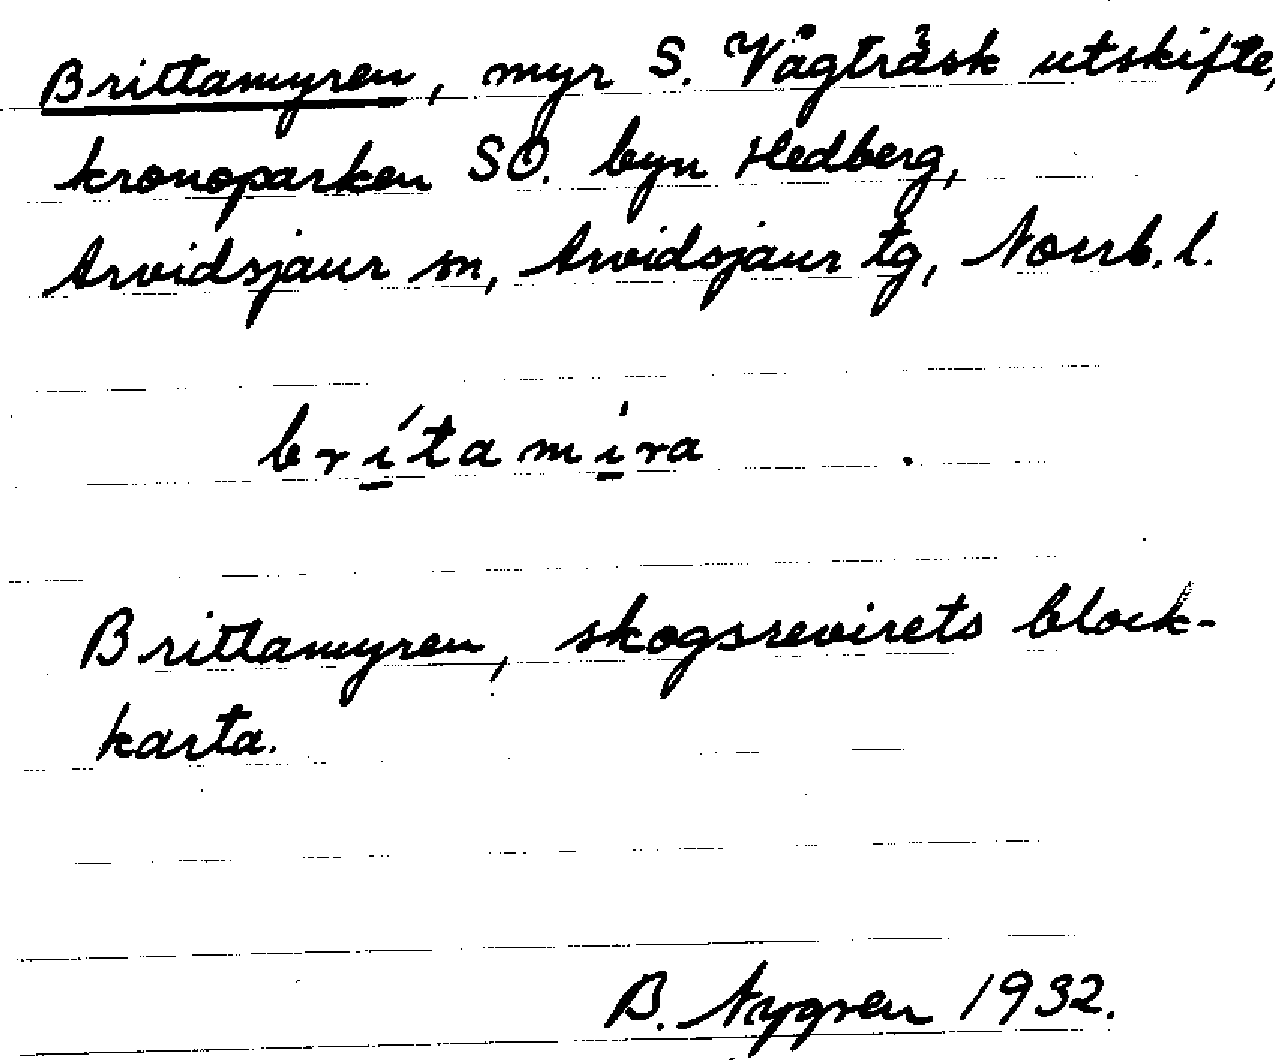 Brittamyren, myr S. Vågträsk utskifte,
kronoparken SO. byn Hedberg,
Arvidsjaur sn, Arvidsjaur tg, Norrb. l.
brítamira
Brittamyren, skogsrevirets block-
karta.
B. Nygren 1932.